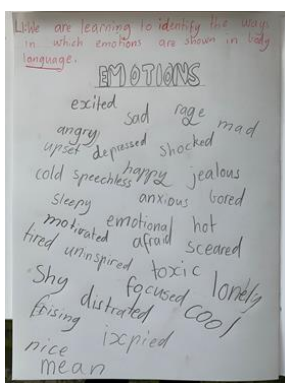 LI: We are learning to identify the ways
in which emotions are shown in body
language.
EMOTIONS
excited sad rage mad
angry
upset depressed shocked
cold speechless happy jealous
sleepy anxious bored
motivated emotional hot
tired uninspired afraid sceared
Shy focused toxic lonely
frising distrated cool
nice ixpied
mean